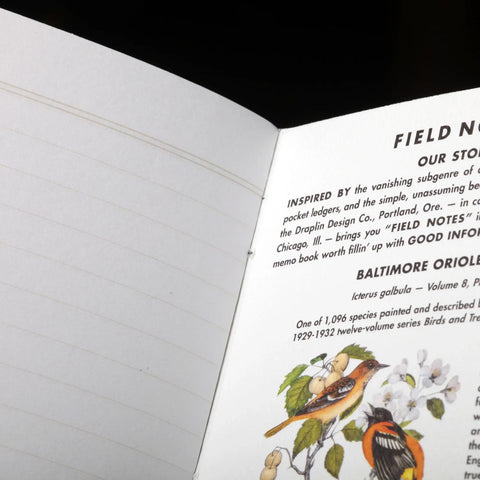 FIELD N
OUR STO
INSPIRED BY the vanishing subgenre of
pocket ledgers, and the simple, unassuming be
the Draplin Design Co., Portland, Ore. — in c
Chicago, Ill. — brings you "FIELD NOTES" i
memo book worth fillin' up with GOOD INFOR
BALTIMORE ORIOLE
Icterus galbula — Volume 8, P
One of 1,096 species painted and described b
1929-1932 twelve-volume series Birds and Tre
fo
w
an
the
Eng
true